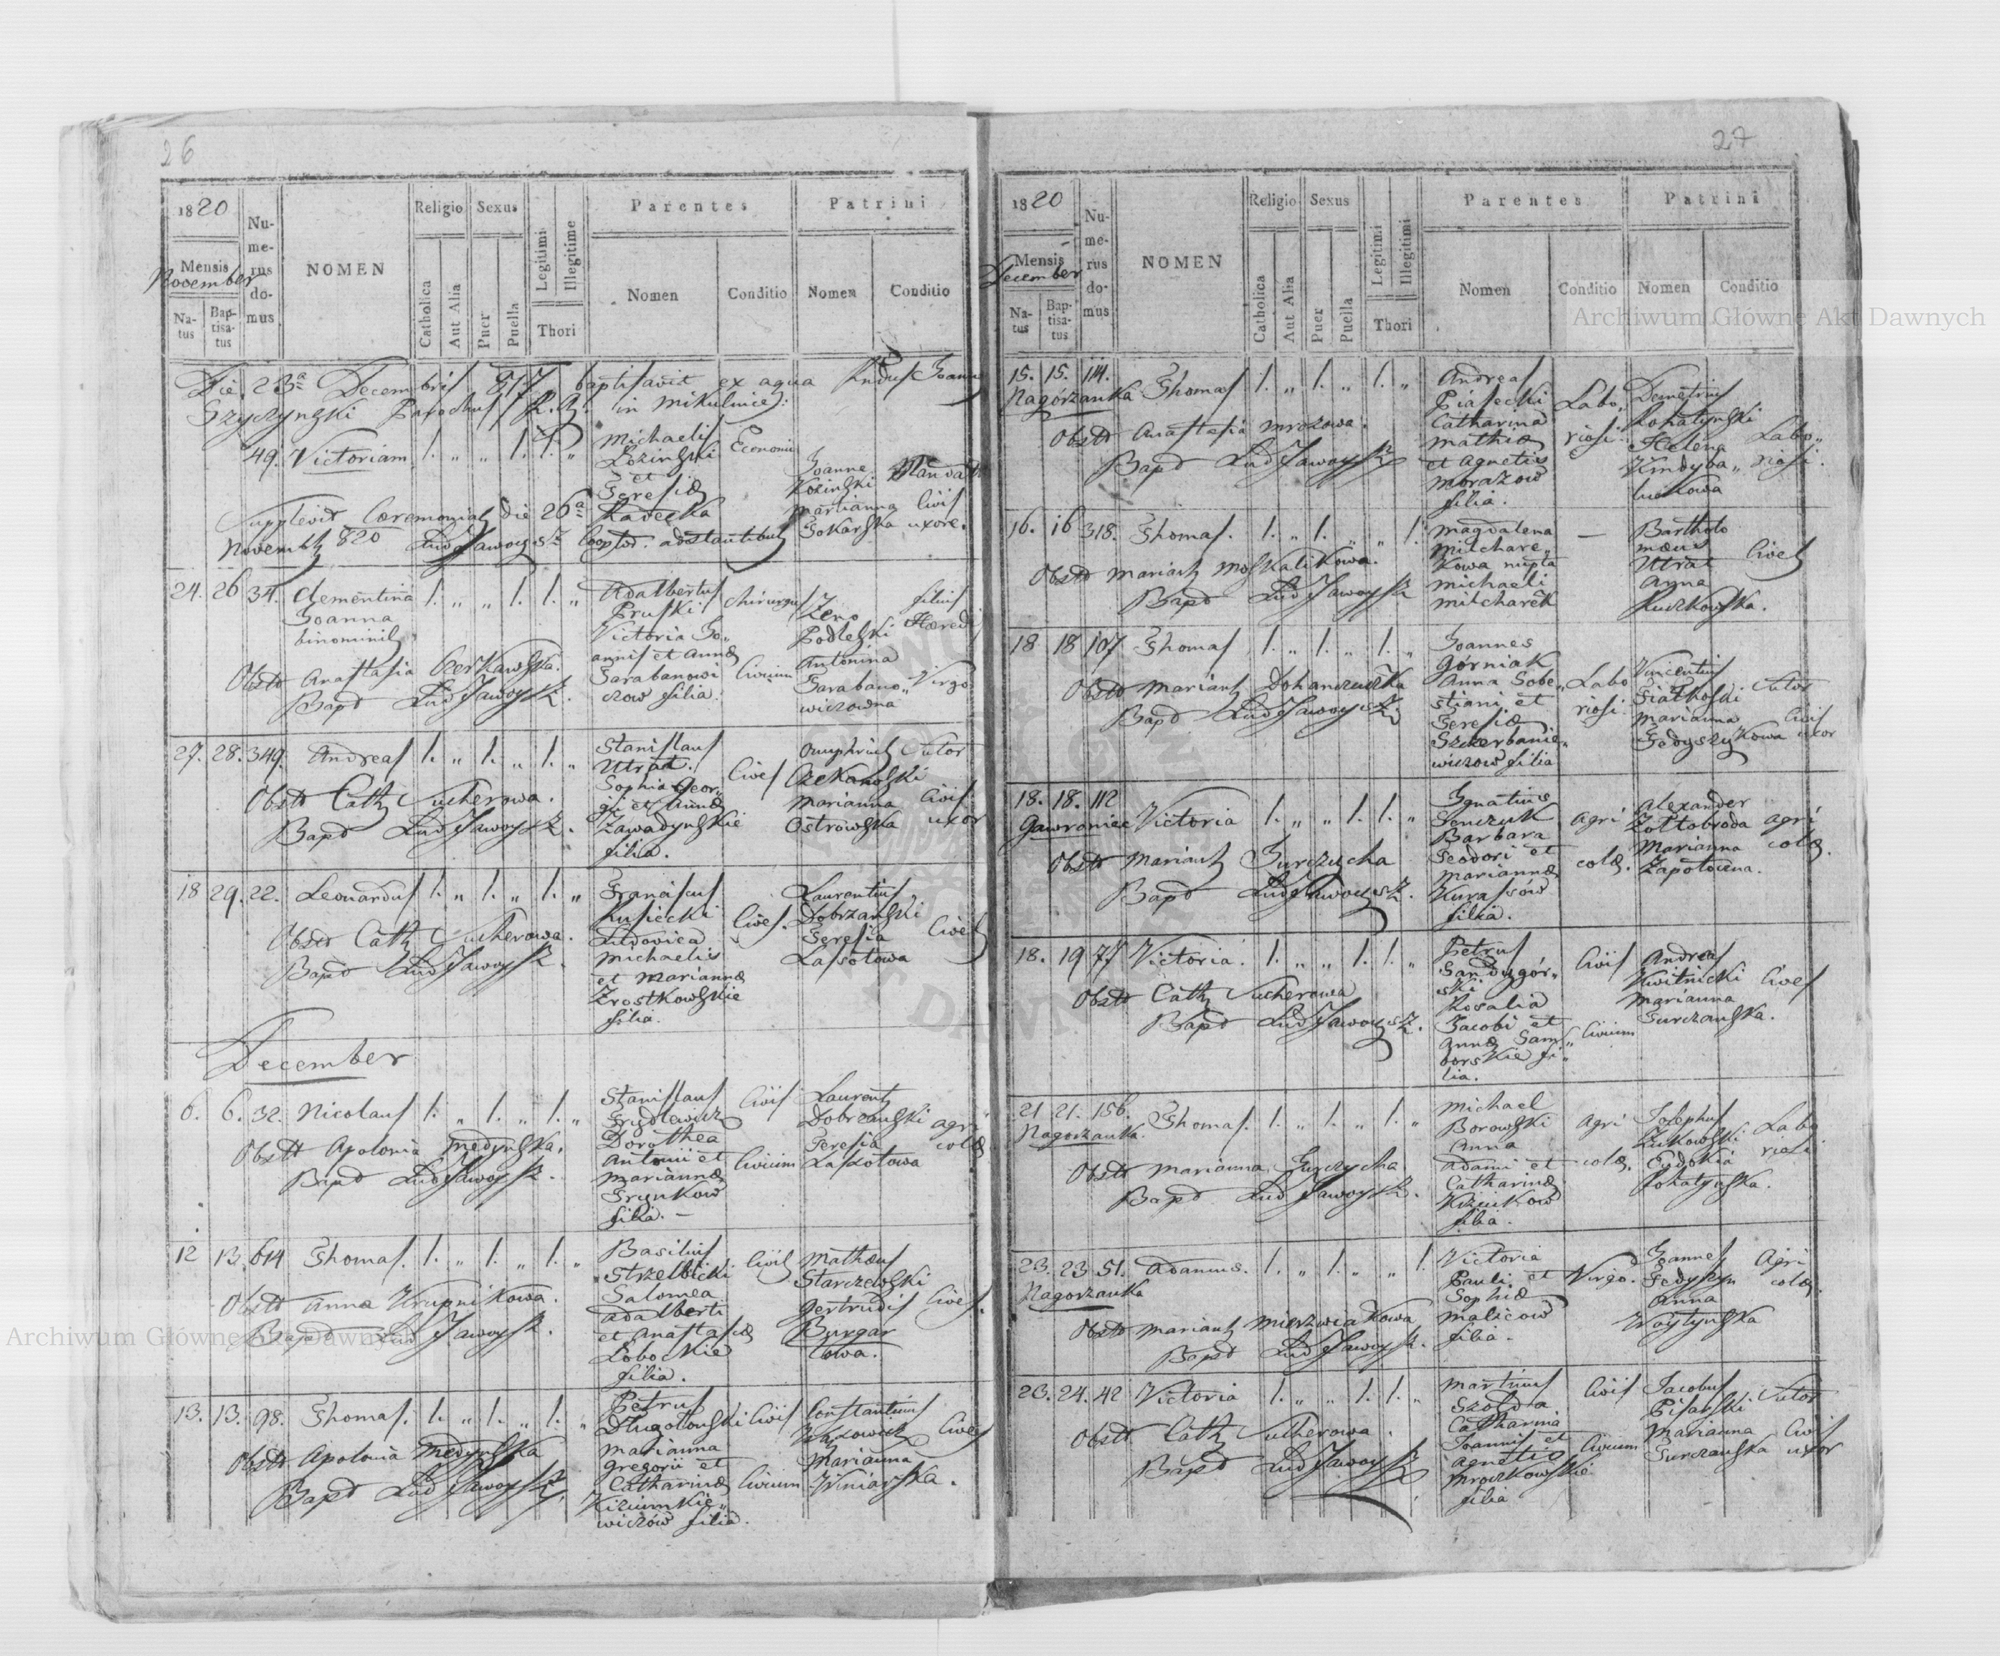 26
1820
Mensis
November
Na-
tus
Bap-
tisa-
tus
Nu-
me-
rus
do-
mus
NOMEN
Religio
Catholica
Aut Alia
Sexus
Puer
Puella
Legitimi
Illegitime
Thori
Parentes
Nomen
Conditio
Patrini
Nomen
Conditio
Die 23a Decembris 817 baptisavit ex aqua Rndus Joannes
Szyczynski Parochus R. G. in Mikulince:
49. Victoriam 1. „ „ 1. 1. „
Michaelis
Łozinski
et
Teresiæ
Radecka
Economi
Joanne
Kozinski
Marianna
Sokarska
Civis
uxore.
Supplevit Cæremonias Die 26a
Novembr 820 Lud Jaworsk Cooptor. adstantibus
24. 26 34. Clementina 1. „ „ 1. 1. „
Joanna
binominis
Obstr Anastasia Czerkawska.
Bapt Lud Jaworsk.
Adalbertus
Pruski
Victoria Jo„
annis et Annæ
Tarabanowi
czow filia.
Chirurgus
Civium
Zeno
Podleski
Antonina
Tarabano„
wiczowna
filius
Hæredis
Virgo
27. 28. 349. Andreas 1. „ 1. „ 1. „
Obstr Cath Sucherowa.
Bapt Lud Jaworsk.
Stanislaus
Utrat.
Sophia Geor„
gii et Annæ
Zawadynskie
filia.
Cives
Onuphrius
Czekanoski
Marianna
Ostrowska
Sutor
Civis
uxor
18 29. 22. Leonardus 1. „ 1. „ 1. „
Obstr Cath Sucherowa.
Bapt Lud Jaworsk.
Franciscus
Rusiecki
Ludovica
Michaelis
et Mariannæ
Zrostkowskie
filia.
Cives.
Laurentius
Dobrzanski
Teresia
Lasotowa
Cives
December
6. 6. 32. Nicolaus 1. „ 1. „ 1. „
Obstr Apolonia Medynska.
Bapt Lud Jaworsk.
Stanislaus
Frydlewicz
Dorothea
Antonii et
Mariannæ
Hrynkow
filia. —
Civis
Civium
Laurent
Dobrzanski
Teresia
Laszotowa
agri
colæ
12 13. 614 Thomas. 1. „ 1. „ 1. „
Obstr Anna Krupnikowa.
Bapt Lud Jaworsk.
Basilius
Strzelbicki
Salomea
Adalberti
et Anastasiæ
Łobockie
filia.
Civis
Mathæus
Starczewski
Gertrudis
Burgar
towa.
Cives.
13. 13. 98. Thomas. 1. „ 1. „ 1. „
Obstr Apolonia Medynska
Bapt Lud Jaworsk.
Petrus
Długolowski
Marianna
Gregorii et
Catharinæ
Kiziunkie„
wiczów filia.
Civis
Civium
Constantinus
Marianna
Winiarska.
Cives
27
1820
Mensis
December
Na-
tus
Bap-
tisa-
tus
Nu-
me-
rus
do-
mus
NOMEN
Religio
Catholica
Aut Alia
Sexus
Puer
Puella
Legitimi
Illegitimi
Thori
Parentes
Nomen
Conditio
Patrini
Nomen
Conditio
15. 15. 114. Thomas 1. „ 1. „ 1. „
Nagórzanka
Obstr Anastasia Mrozowa.
Bapt Lud Jaworsk
Andreas
Piasecki
Catharina
Mathiæ
et Agnetis
Morazow
filia.
Labo„
riosi.
Demetrius
Rohatynski
Helena
Labo„
riosi.
16. 16 318. Thomas. 1. „ 1. „ „ 1.
Obstr Mariann Moskalikowa.
Bapt Lud Jaworsk
Magdalena
Milchare„
kowa nupta
Michaeli
Milcharek
—
Bartholo
mæus
Utrat
Anna
Ruczkowska.
Cives
18 18 107 Thomas 1. „ 1. „ 1. „
Obstr Mariann Dohanczuczka
Bapt Lud Jaworsk.
Joannes
Górniak
Anna Sobe„
stiani et
Teresiæ
Szczerbanie„
wiczow filia
Labo
riosi.
Vincentius
Fiałkoski
Marianna
Fedyszykowa
Sutor
Civis
uxor
18. 18. 112 Victoria 1. „ „ 1. 1. „
Gawroniec
Obstr Mariann Jurczycha
Bapt Lud Jaworsk.
Ignatius
Senczuk
Barbara
Teodori et
Mariannæ
Kurasów
filia.
agri
colæ.
Alexander
Zołtobroda
Marianna
Zapotoczna.
agri
colæ.
18. 19 77 Victoria 1. „ „ 1. 1. „
Obstr Cath Sucherowa
Bapt Lud Jaworsk.
Petrus
Sandygór„
ski
Rosalia
Jacobi et
Annæ Sam„
borskie fi„
lia.
Civis
Civium
Andreas
Kwitnicki
Marianna
Surczanska.
Cives
21 21. 156. Thomas. 1. „ 1. „ 1. „
Nagorzanka.
Obstr Marianna Jurczycha.
Bapt Lud Jaworsk.
Michael
Borowski
Anna
Adami et
Catharinæ
Kiziukow
filia.
agri
colæ.
Josephus
Zukowski
Eudokia
Rohatynska.
Labo
riosi.
23. 23 51. Adamus. 1. „ 1. „ „ 1.
Nagorzanka
Obstr Mariann Mierzwiakowa
Bapt Lud Jaworsk.
Victoria
Pauli et
Sophiæ
Malicow
filia.
Virgo.
Joannes
Fedyszyn
Anna
Woytynska
Agri
colæ.
23. 24. 42 Victoria 1. „ „ 1. 1. „
Obstr Cath Sucherowa.
Bapt Lud Jaworsk
Martinus
Szołda
Catharina
Joannis et
Agnetis
Mroczkowskie
filia
Civis
Civium
Jacobus
Pisarski
Marianna
Surczanska
Sutor
Civis
uxor
Archiwum Główne Akt Dawnych
Archiwum Główne Akt Dawnych